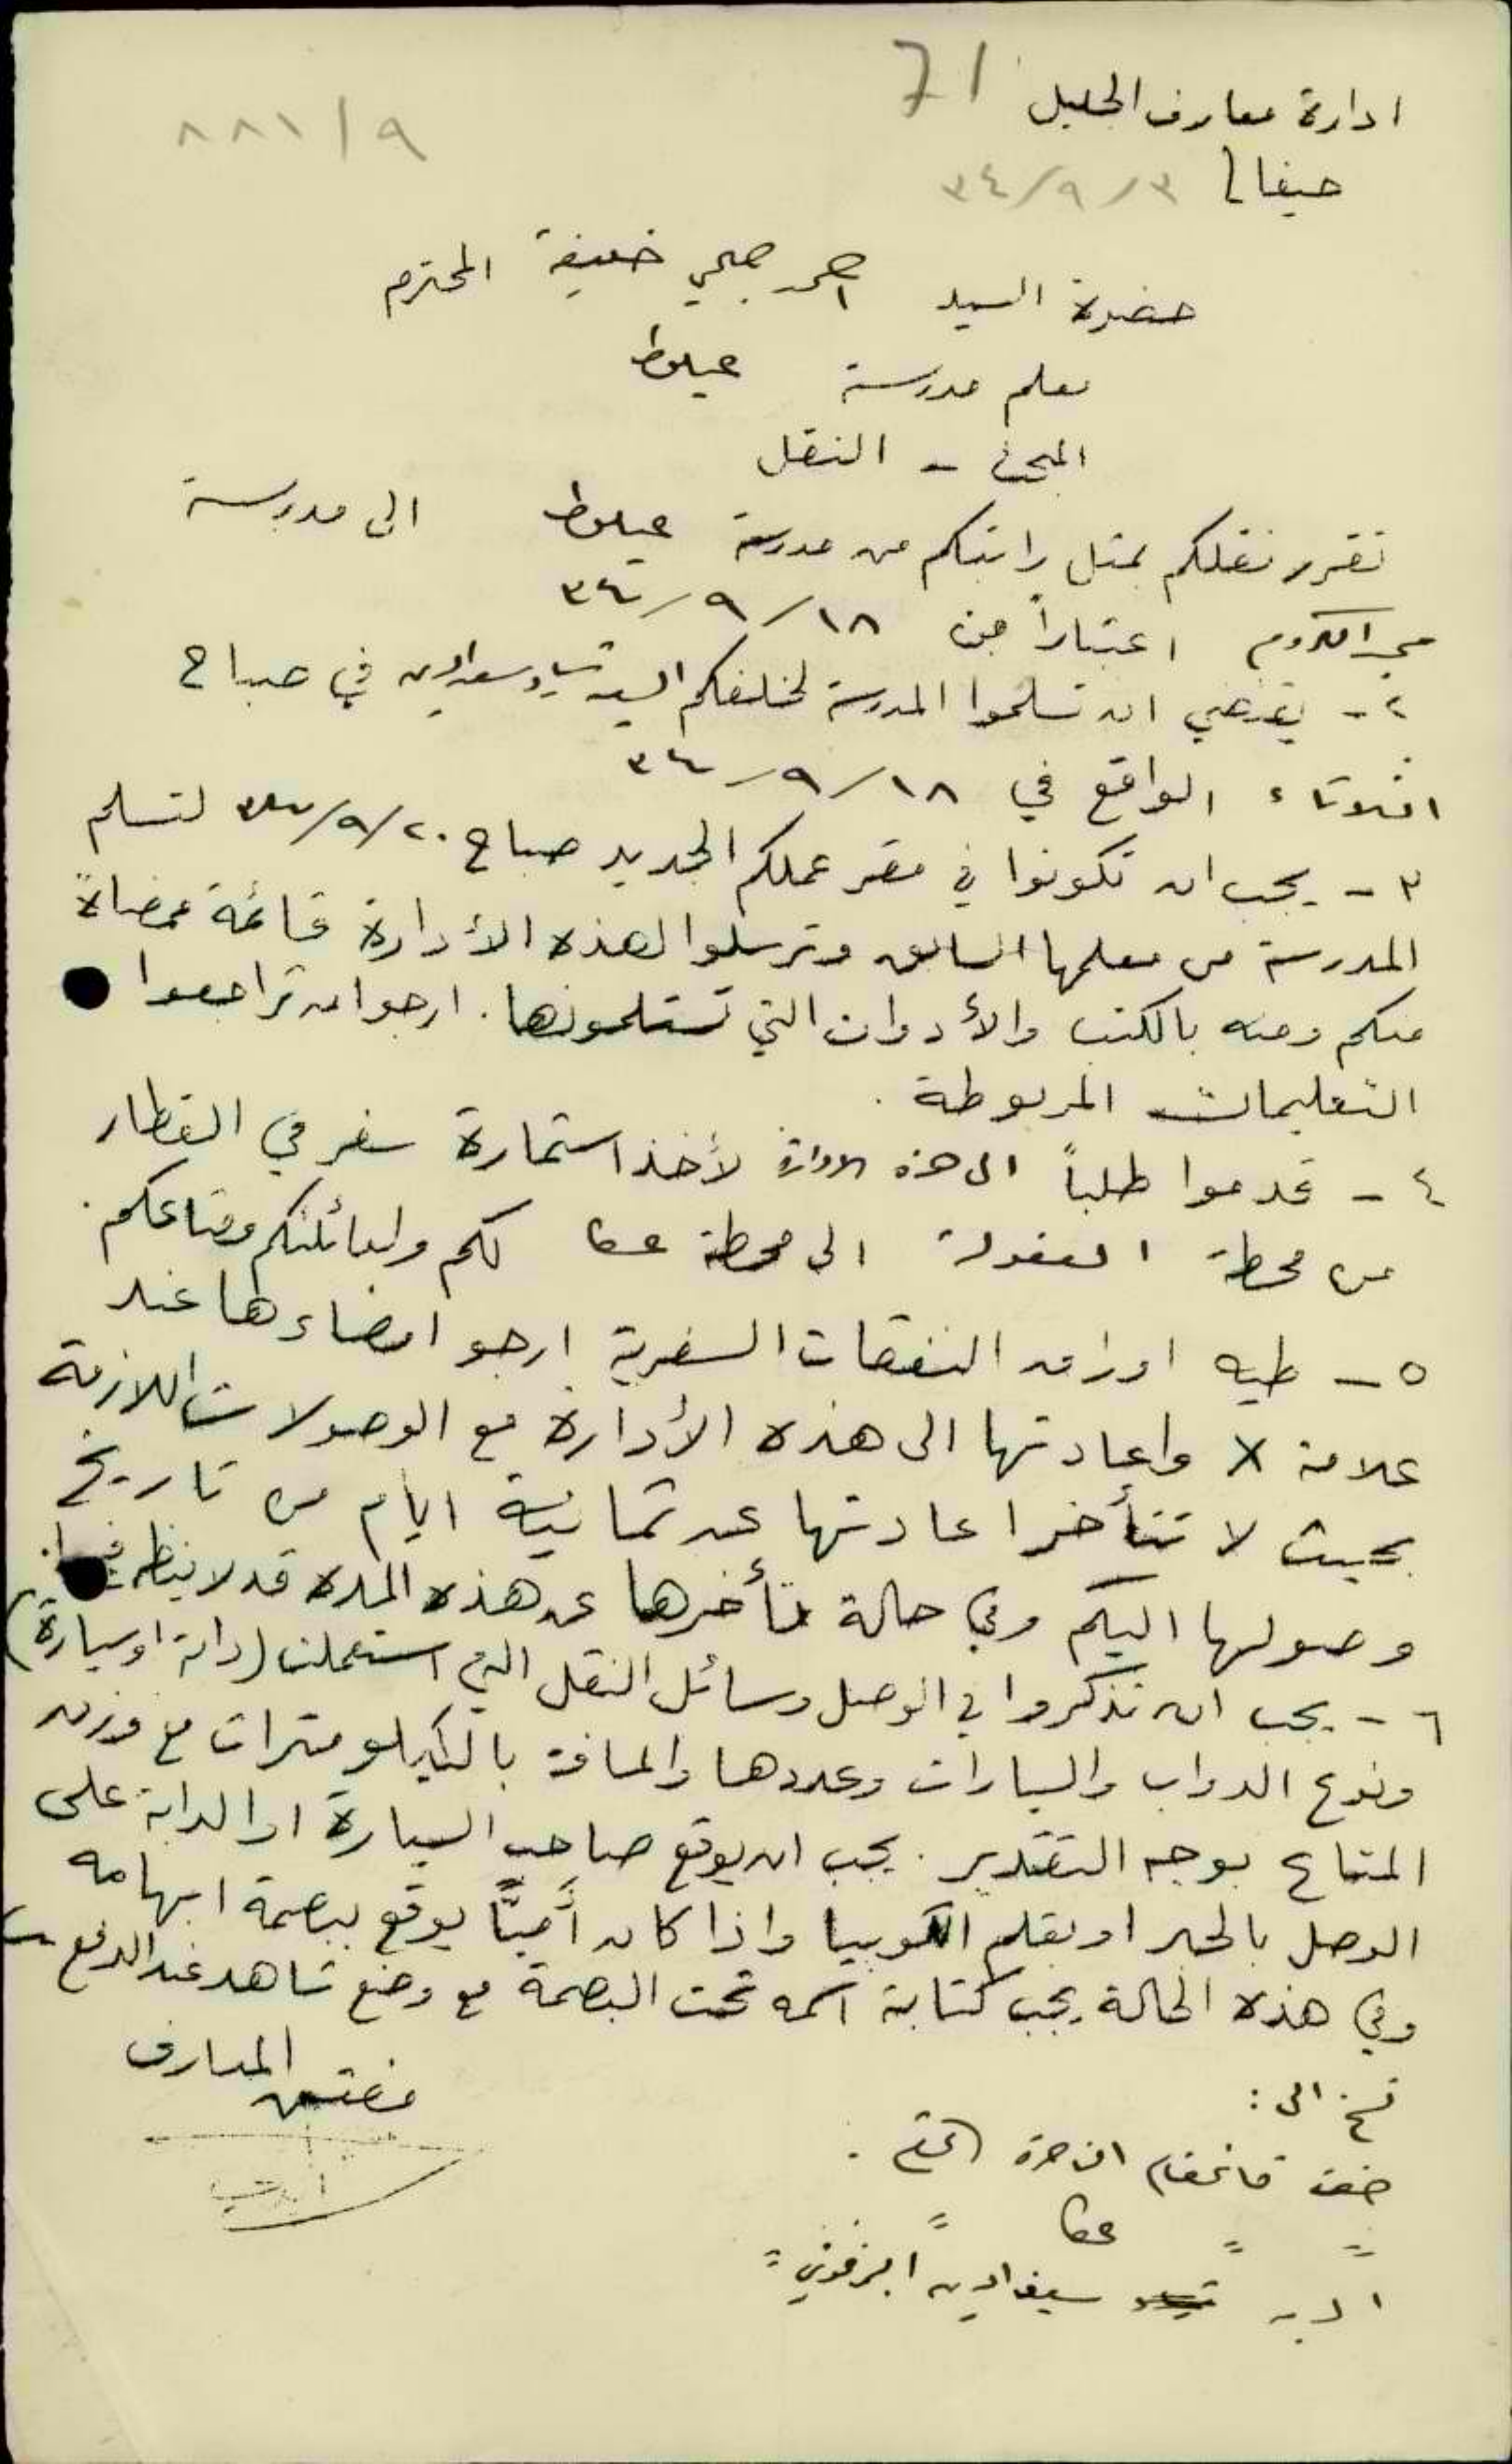 ادارة معارف الجليل 71
٨٨١/٩
حيفا ٣٤/٩/٣
حضرة السيد احمد صبحي خليفة المحترم
معلم مدرسة عيلوط
المبحث - النقل
تقرر نقلكم بمثل راتبكم من مدرسة عيلوط الى مدرسة
مجد الكروم اعتباراً من ٣٤/٩/١٨
٢- يقتضي ان تسلموا المدرسة لخلفكم السيد في صباح
الثلاثاء الواقع في ٣٤/٩/١٨
٣- يجب ان تكونوا في مقر عملكم الجديد صباح ٣٤/٩/٢٠ لتسلم
المدرسة من معلمها السابق وترسلوا لهذه الأدارة قائمة ممضاة
منكم ومنه بالكتب والأدوات التي تستلمونها. ارجو ان تراجعوا
التعليمات المربوطة.
٤- قدموا طلباً الى هذه الادارة لأخذ استمارة سفر في القطار
من محطة العفولة الى محطة عكا لكم ولعائلتكم ومتاعكم.
٥- طيه اوراق النفقات السفرية ارجو امضاءها عند
علامة X واعادتها الى هذه الأدارة مع الوصولات اللازمة
بحيث لا تتأخر اعادتها عن ثمانية ايام من تاريخ
وصولها اليكم وفي حالة تأخرها عن هذه المدة قد لا ينظر فيها.
٦- يجب ان تذكروا في الوصل وسائل النقل التي استعملت (دابة او سيارة)
ونوع الدواب والسيارات وعددها والمسافة بالكيلومترات مع وزن
المتاع بوجه التقدير. يجب ان يوقع صاحب السيارة او الدابة على
الوصل بالحبر او بقلم الكوبيا واذا كان أميّاً يوقع ببصمة ابهامه
وفي هذه الحالة يجب كتابة اسمه تحت البصمة مع وضع شاهد عند الدفع
مفتش المعارف
نسخ الى:
حضرة قائمقام الناصرة المحترم.
" " عكا "
السيد سيف الدين